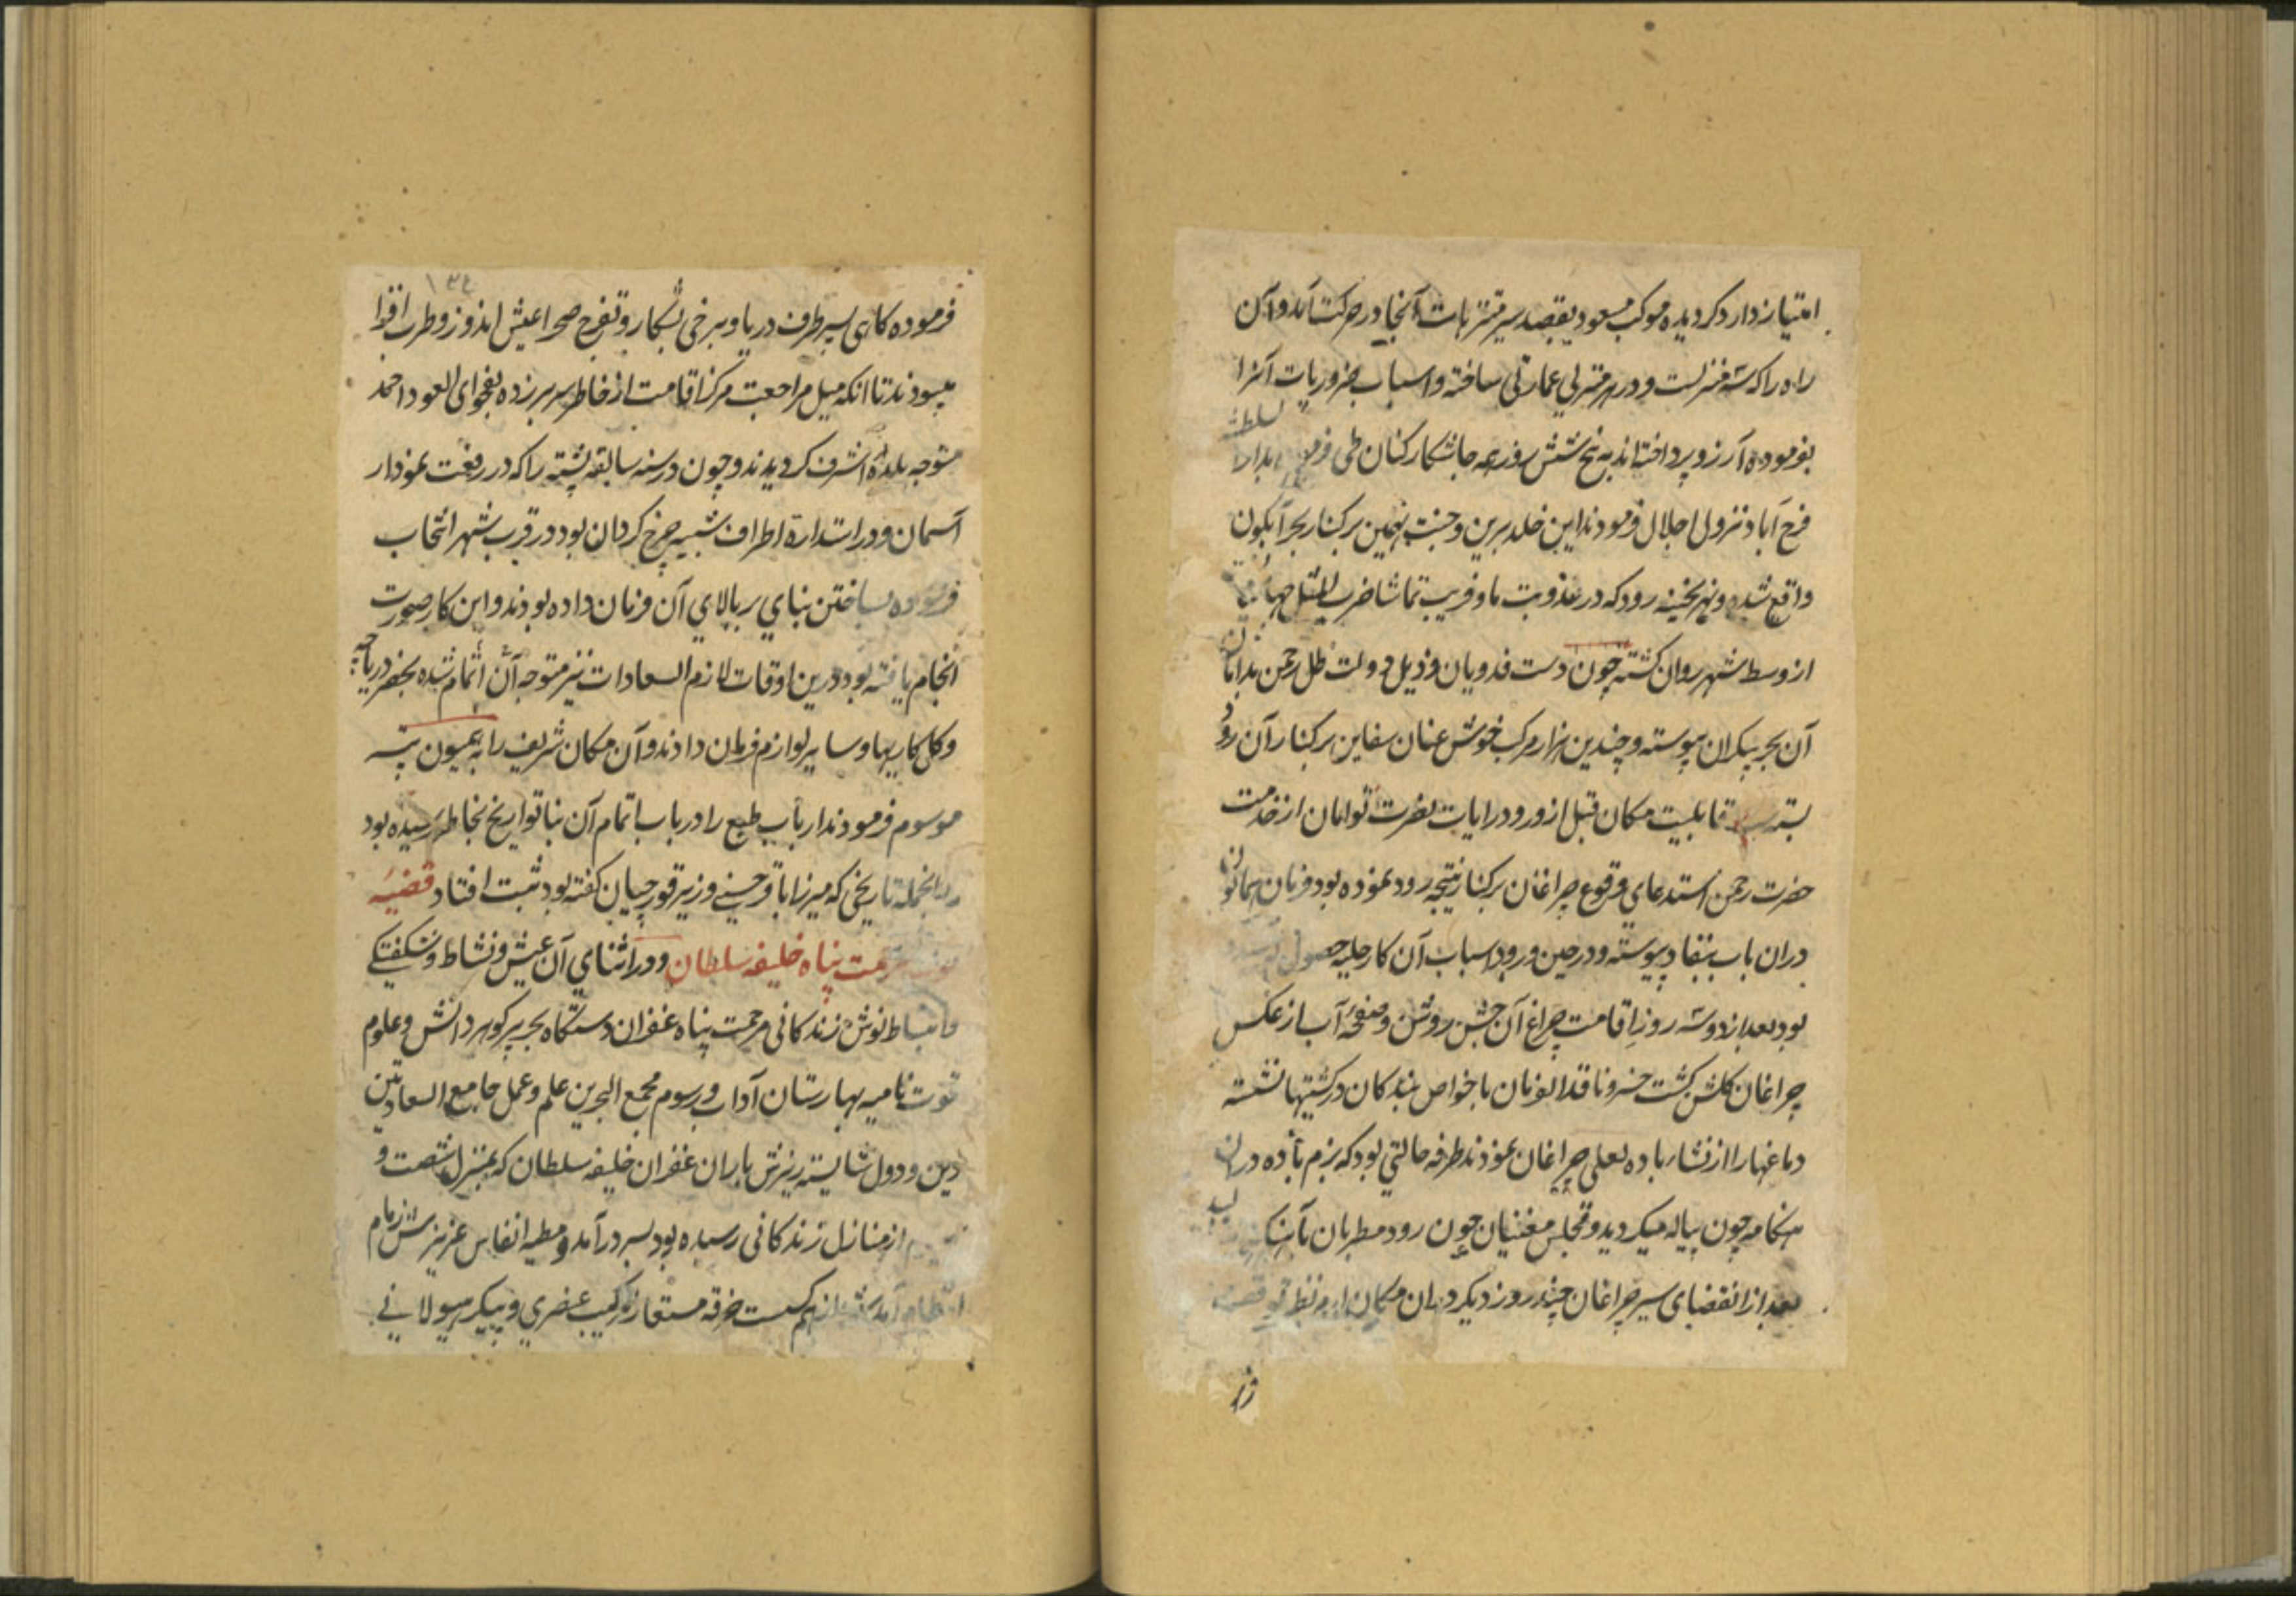 امتیاز دارد کردیده موکب مسعود بقصد سیر متنزهات آنجا در حرکت آمد و آن
راه را که سه منزلست و در هر منزلی عمارتی ساخته و اسباب ضروریات آنرا
بفرموده آرزو پرداخته‌اند به پنج شش روز همه جا شکار کنان طی سلطنه
فرح آباد نزول اجلال فرمودند این خلد برین و جنت بهین بر کنار بحر آبکون
واقع شده و نهر بجینه رود که در عذوبت ما و فریب تماشا ضرب المثل
از وسط شهر روان کشته چون دست فدویان و ذیل دولت ظل رحمن بدامان
آن بحر بیکران پیوسته و چندین هزار مرکب خوش عنان سفاین بر کنار آن رود
بسته قابلیت مکان قبل از ورود رایات نصرت توامان از خدمت
حضرت رحمن استدعای وقوع چراغان بر کنار نتیجه رود نموده بود فرمان همایون
در ان باب بنفاد پیوسته و در حین ورود اسباب آن کار حلیه حصول
بود بعد از دو سه روز اقامت چراغ آن جشن روشن و صفحه آب از عکس
چراغان کلشن کشت خسرو نافذ الفرمان با خواص بندکان در کشتیها نشسته
دماغها را از نشاء باده لعلی چراغان نمودند طرفه حالتی بود که بزم باده در ان
هنکامه چون پیاله میکردید و مجلس مغنیان چون رود مطربان بآهنک
بعد از انقضای سیر چراغان چند روز دیکر در ان مکان
فرموده کاهی بسیر طرف دریا و برخی بشکار و تفرج صحرا عیش اندوز و طرب افزا
میبودند تا آنکه میل مراجعت مرکز اقامت از خاطر سر برزده بفحوای العود احمد
متوجه بلده اشرف کردیدند و چون در سنه سابقه پشته را که در رفعت نمودار
آسمان و در استداره اطراف شبیه چرخ کردان بود در قرب شهر انتخاب
فرموده بساختن بنای بر بالای آن فرمان داده بودند و این کار صورت
انجام یافته بود درین اوقات لازم السعادات نیز متوجه آن اتمام شده بحفر دریاچه
و کل کاریها و سایر لوازم فرمان دادند و آن مکان شریف را به همیون تپه
موسوم فرمودند ارباب طبع را در باب اتمام آن بنا تواریخ بخاطر رسیده بود
از انجمله تاریخی که میرزا باقر حسینی وزیر قورچیان کفته بود ثبت افتاد قضیه
مرحمت پناه خلیفه سلطان و در اثنای آن عیش و نشاط و شکفتکی
و انبساط نوش زندکانی مرحمت پناه غفران دستکاه بحر پر کوهر دانش و علوم
قوت نامیه بهارستان آداب و رسوم مجمع البحرین علم و عمل جامع السعادتین
دین و دول شایسته ریزش باران غفران خلیفه سلطان که بمنزل شصت و
از منازل زندکانی رسیده بود بسر درآمد و مطیه انفاس عزیزش زمام
کسست خرقه مستعار ترکیب عنصری و پیکر هیولانی